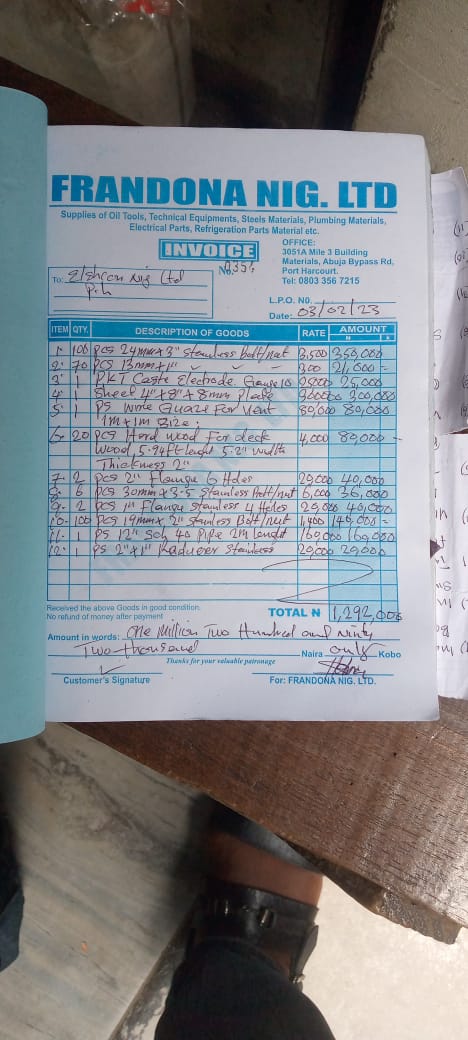 FRANDONA NIG. LTD
Supplies of Oil Tools, Technical Equipments, Steels Materials, Plumbing Materials,
Electrical Parts, Refrigeration Parts Material etc.
INVOICE
No.
OFFICE:
3051A Mile 3 Building
Materials, Abuja Bypass Rd,
Port Harcourt.
Tel: 0803 356 7215
To: Nig Ltd
P.H
L.P.O. No.
Date: 03/02/23
ITEM QTY. DESCRIPTION OF GOODS RATE AMOUNT
N K
1. 100 pcs 24mm x 3" stainless bolt/nut 3,500 350,000
2. 70 pcs 13mm x 1" 300 21,000 -
3. 1 PKT Caste Electrode Gauge 10 25,000 25,000
4. 1 Sheet 4" x 8" x 8mm Plate 300000 300,000
5. 1 Ps Wire Guaze For Vent 80,000 80,000
1m x 1m Size.
6. 20 pcs Hard wood For deck 4,000 80,000 -
Wood 5.94ft lenght 5.2" width
Thickness 2"
7. 2 pcs 2" Flange 6 Holes 20,000 40,000
8. 6 pcs 30mm x 3.5 Stainless bolt/nut 6,000 36,000
9. 2 pcs 1" Flange stainless 4 Holes 20,000 40,000
10. 100 pcs 19mm x 2" Stainless Bolt/nut
11. 1 Ps 12" Sch 40 Pipe 2m lenght 169,000 169,000
12. 1 Ps 2" x 1" Raducer Stainless
Received the above Goods in good condition.
No refund of money after payment
TOTAL N 1,292,000
Amount in words: One Million Two Hundred and ninty
Two thousand Naira only Kobo
Thanks for your valuable patronage
Customer's Signature
For: FRANDONA NIG. LTD.